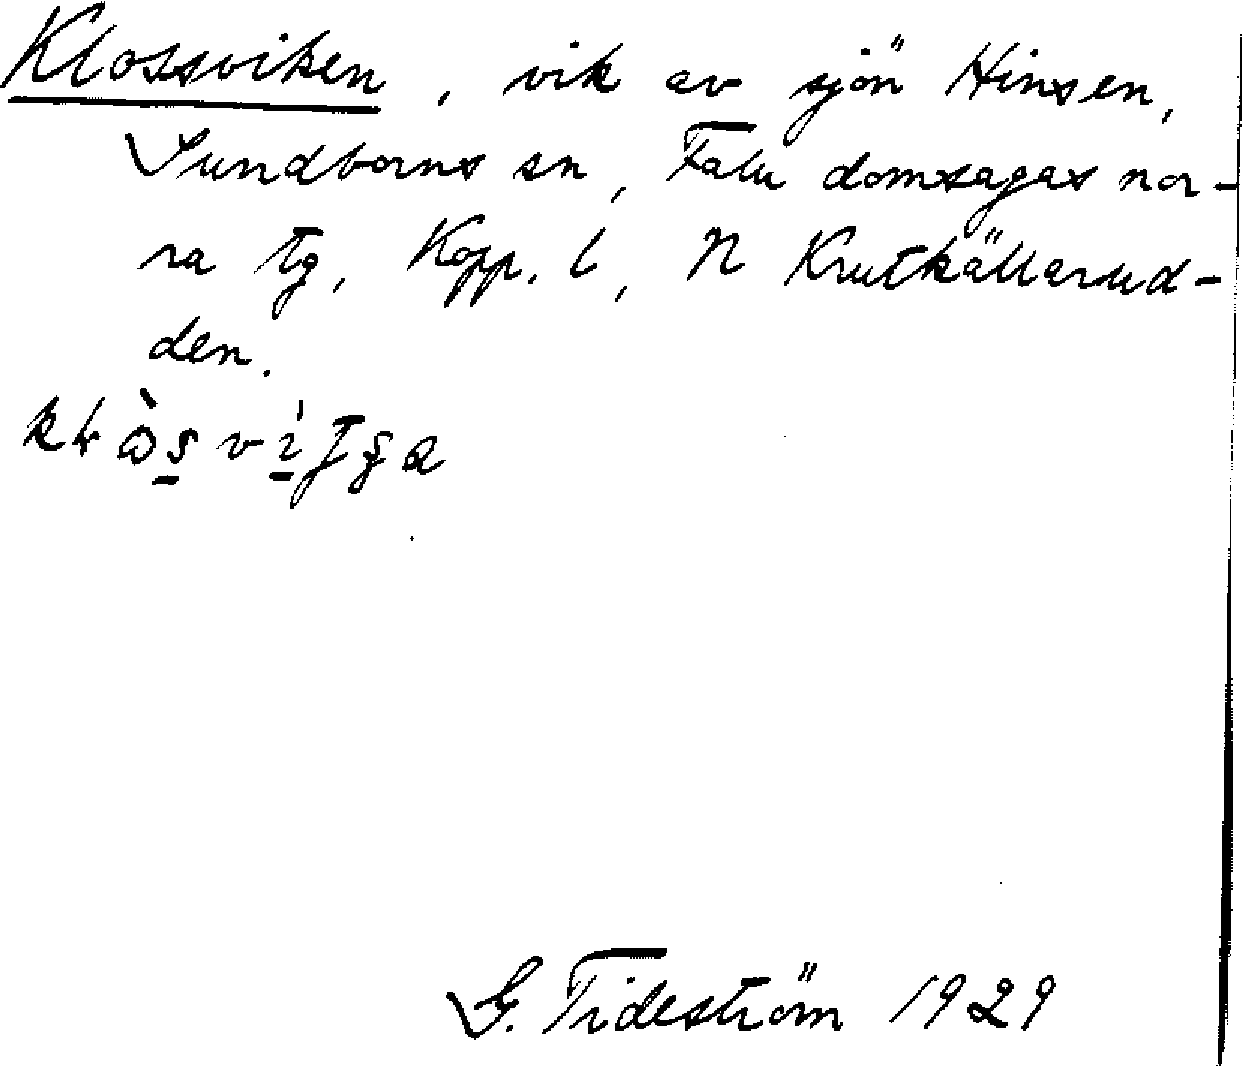 Klossviken, vik av sjön Hinsen,
Sundborns sn, Falu domsagas nor-
ra tg, Kopp. l, N Krutkällarud-
den.
G. Tideström 1929